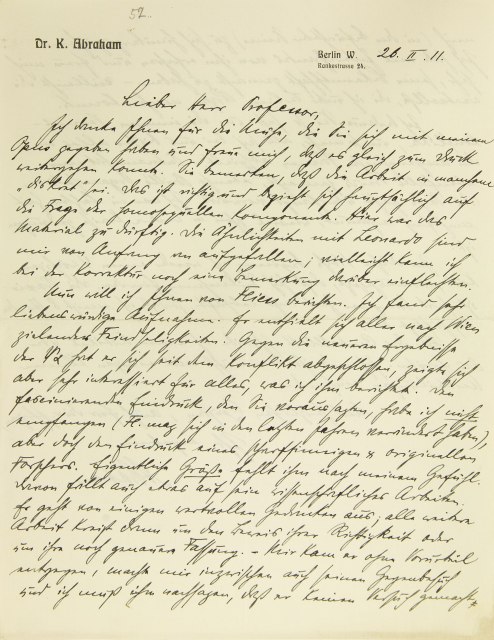 52.
Dr. K. Abraham
Berlin W. 26. II. 11.
Rankestrasse 24.
Lieber Herr Professor,
Ich danke Ihnen für die Mühe, die Sie sich mit meinem
Opus gegeben haben und freue mich, daß es gleich zum Druck
weitergehen konnte. Sie bemerken, daß die Arbeit in manchem
„diskret“ sei. Das ist richtig und bezieht sich hauptsächlich auf
die Frage der homosexuellen Komponente. Hier war das
Material zu dürftig. Die Ähnlichkeiten mit Leonardo sind
mir von Anfang an aufgefallen; vielleicht kann ich
bei der Korrektur noch eine Bemerkung darüber einflechten.
Nun will ich Ihnen von Fliess berichten. Ich fand sehr
liebenswürdige Aufnahme. Er enthielt sich aller nach Wien
zielenden Feindseligkeiten. Gegen die neueren Ergebnisse
der ΨΑ hat er sich seit dem Konflikt abgeschlossen, zeigte sich
aber sehr interessiert für alles, was ich ihm berichtete. Den
fascinierenden Eindruck, den Sie voraussagten, habe ich nicht
empfangen (Fl. mag sich in den letzten Jahren verändert haben),
aber doch den Eindruck eines scharfsinnigen & originellen
Forschers. Eigentliche Größe fehlt ihm nach meinem Gefühl.
Davon fällt auch etwas auf sein wissenschaftliches Arbeiten.
Er geht von einigen wertvollen Gedanken aus; alle weitere
Arbeit kreist dann um den Beweis ihrer Richtigkeit oder
um ihre noch genauere Fassung. – Mir kam er ohne Vorurteil
entgegen, machte mir inzwischen auch seinen Gegenbesuch
und ich muß ihm nachsagen, daß er keinen Versuch gemacht